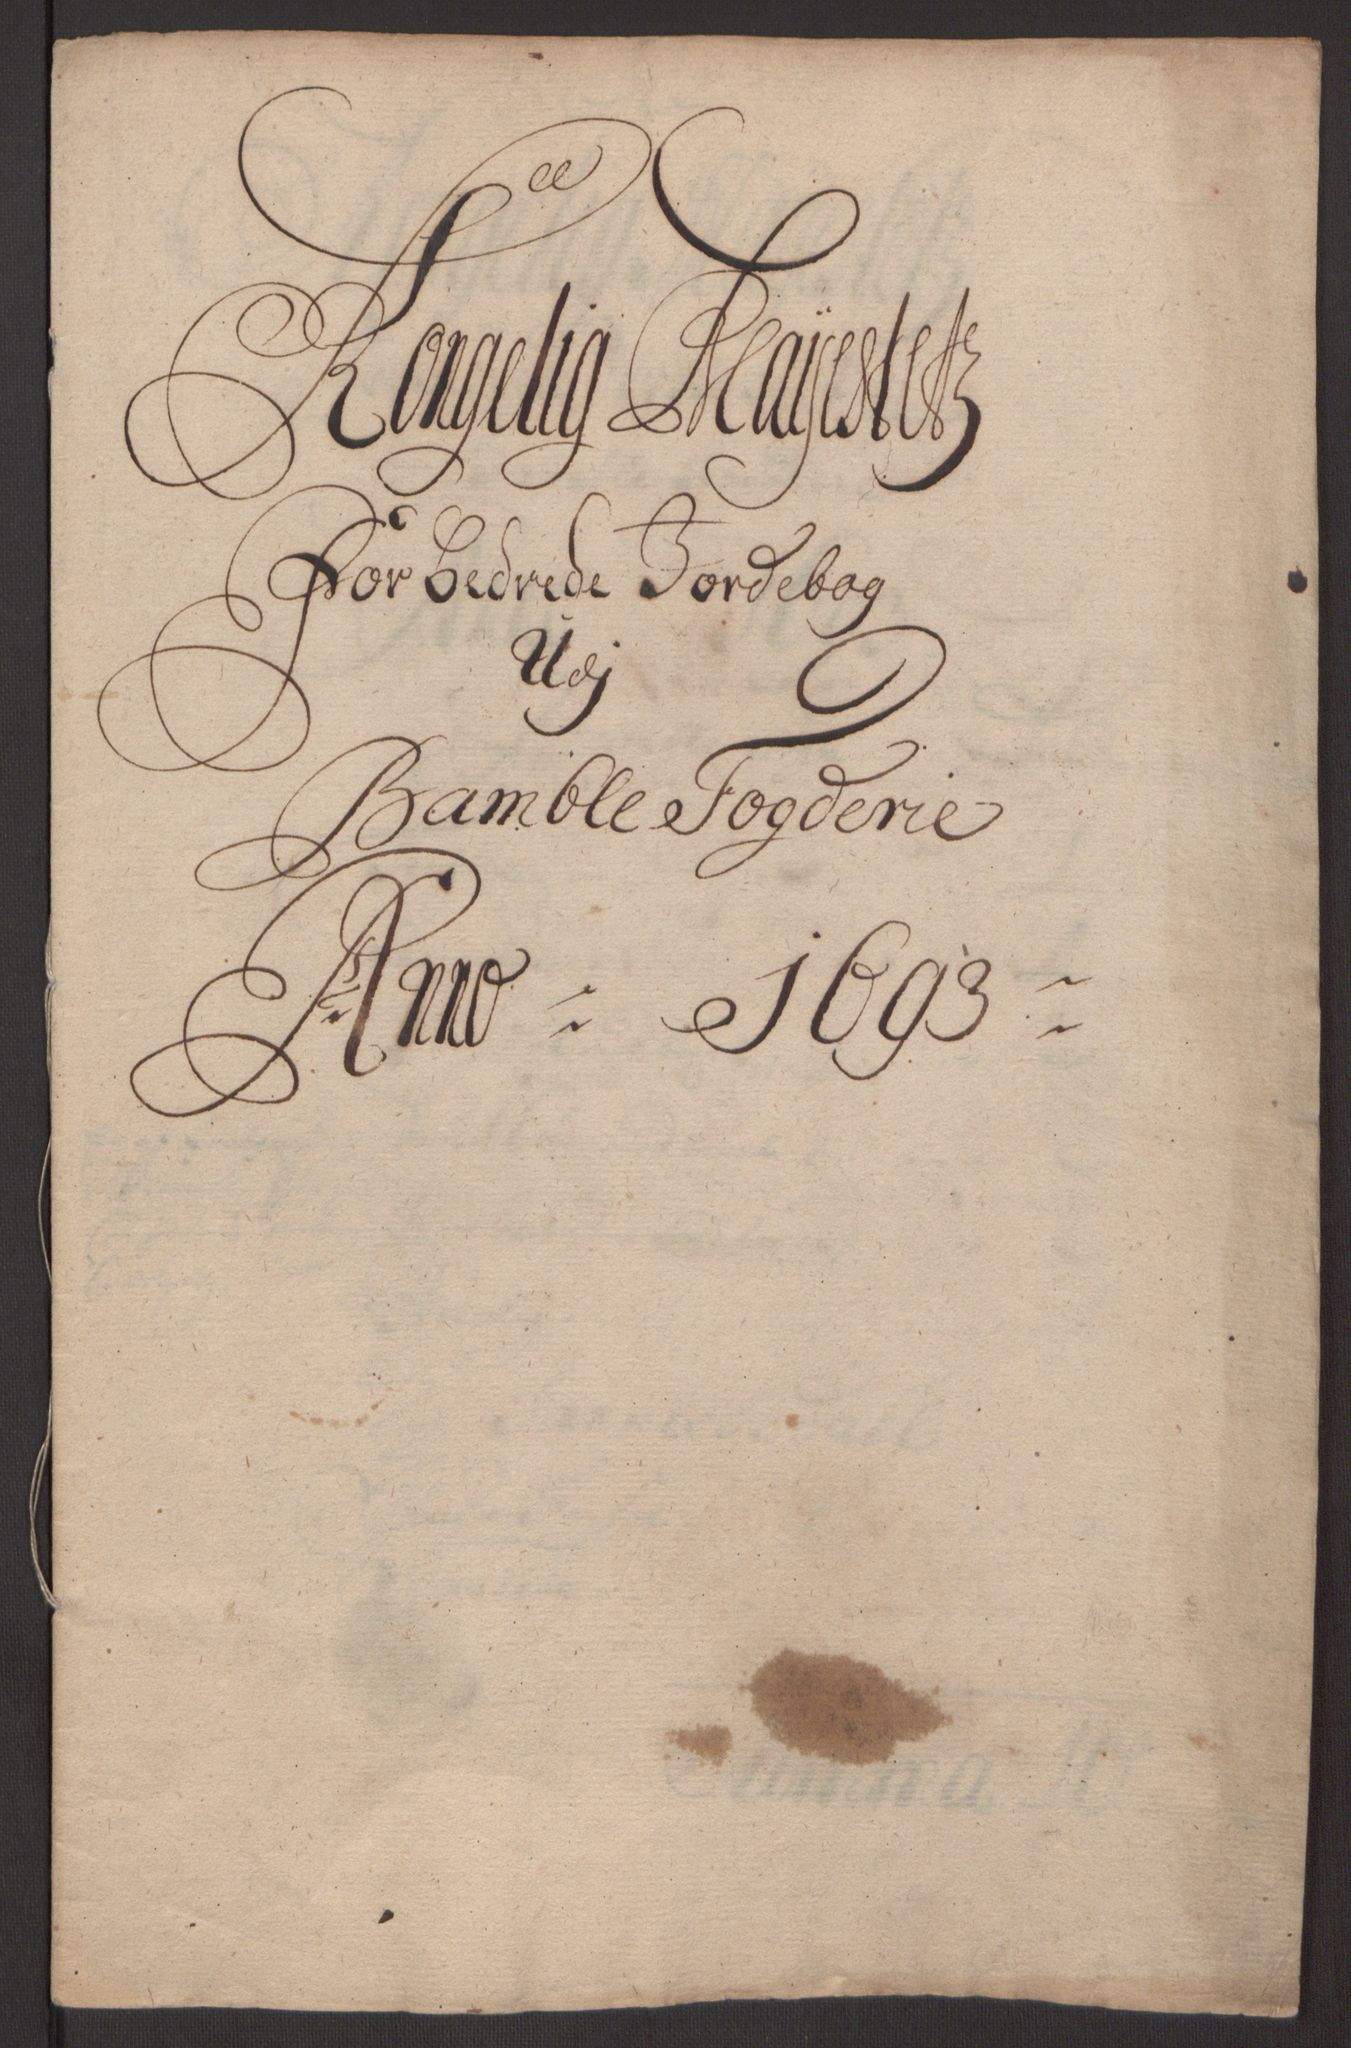 ee
Kongelig Mayestetz
Forbedrede Jordebog
Udj
Bamble Fogderie
Anno = 1693 =